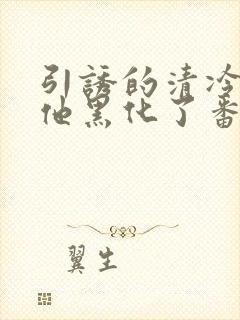 引誘的清冷
他黑化了番
翼生